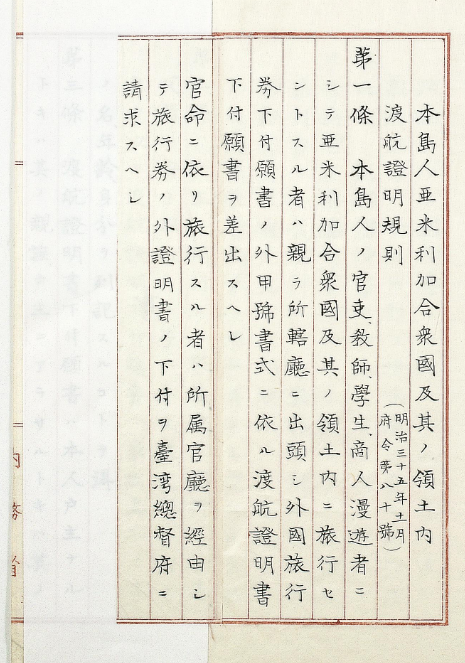 本島人亜米利加合衆國及其ノ領土内
渡航證明規則
(明治三十五年十一月
府令第八十號)
第一條 本島人ノ官吏、敎師、學生、商人漫遊者ニ
シテ亜米利加合衆國及其ノ領土内ニ旅行セ
ントスル者ハ親ラ所轄廳ニ出頭シ外國旅行
券下付願書ノ外甲號書式ニ依ル渡航證明書
下付願書ヲ差出スヘシ
官命ニ依リ旅行スル者ハ所属官廳ヲ經由シ
テ旅行券ノ外證明書ノ下付ヲ臺湾總督府ニ
請求スヘシ
内務省